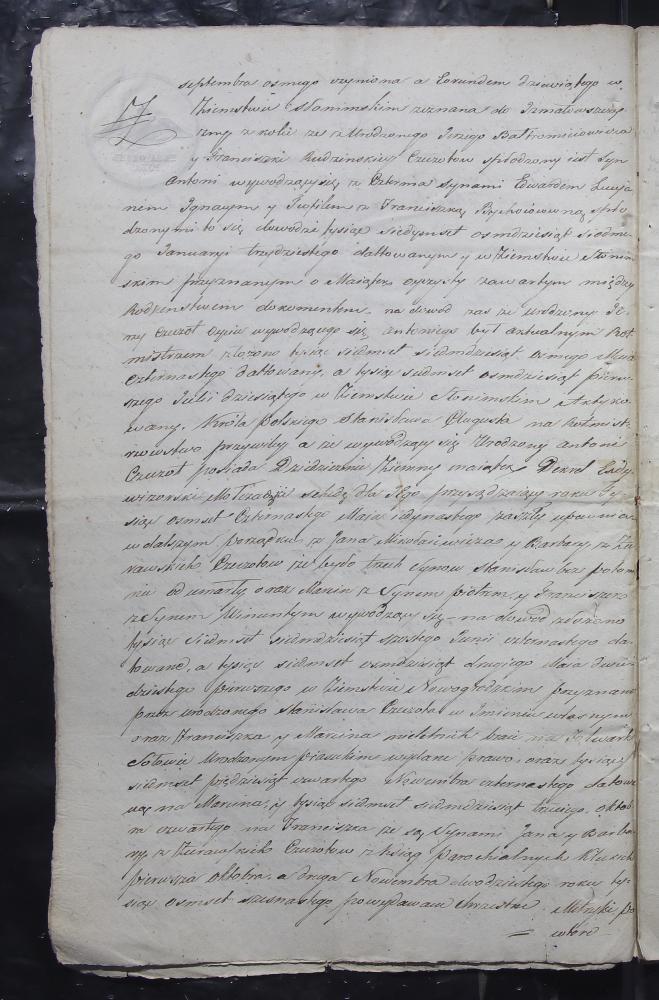 septembra osmego czyniona a Eorundem dziewiątego w
Ziemstwie Słonimskim zeznana do
z kolei ze Urodzonego Jerzego Bałtromieiowicza
y Franciszki Rudzinskiey Czeczotow spłodzony iest Syn
Antoni wywodzący się z Czterma Synami Edwardem Lucya
nem Ignacym y Teofilem z Franciszką Bychowcowną spło
dzonymi to się dowodzi tysiąc siedymset osmdziesiąt siodme
go Januaryi trzydziestego dattowanym y w Ziemstwie Słonim
skim przyznanym o Maiątek oyczysty zawartym między
Rodzenstwem dokumentem. na dowod zas że urodzony Je
rzy Czeczot Oyciec wywodzącego się Antoniego był aktualnym Rot
mistrzem złożono tysiąc siedmset siedmdziesiąt osmego Maia
Czternastego dattowany, a tysiąc siedmset osmdziesiąt pierw
szego Julii dziesiątego w Ziemstwie Słonimskim aktyko
wany. Krola Polskiego Stanisława Augusta na Rotmistr
zowstwo przywiley a że wywodzący się Urodzony Antoni
Czeczot posiada Dziedziczny Ziemny maiątek Dekret Exdy
wizorski schedę dla Jego przysądzaiący roku ty
siąc osmset Czternastego Maia iedynastego zaszły upewnia
w dalszym porządku z Jana Mikołaiewicza y Barbary z Żu
rawskich Czeczotow że było trzech synow Stanisław bez potom
nie umarły oraz Marcin z Synem Piotrem, y Franciszek
z Synem Wincentym wywodzący się – na dowod złożono
tysiąc siedmset siedmdziesiąt szostego Junii czternastego da
towane, a tysiąc siedmset osmdziesiąt drugiego Maia dwu
dziestego pierwszego w Ziemstwie Nowogrodzkim przyznane
przez urodzonego Stanisława Czeczota w Imieniu własnym
oraz Franciszka y Marcina nieletnich braci na Folwark
Urodzonym Piaseckim wydane prawo, oraz tysiąc
siedmset pięćdziesiąt czwartego Nowembra czternastego datowa
ną na Marcina, y tysiąc siedmset siedmdziesiąt trzeciego Oktob
ra czwartego na Franciszka że są Synami Jana y Barba
ry z Żurawskich Czeczotow z ksiąg Parochialnych
pierwsza Oktobra, a druga Nowembra dwudziestego roku tys
iąc osmset szesnastego powydawane Metryki po
wtore